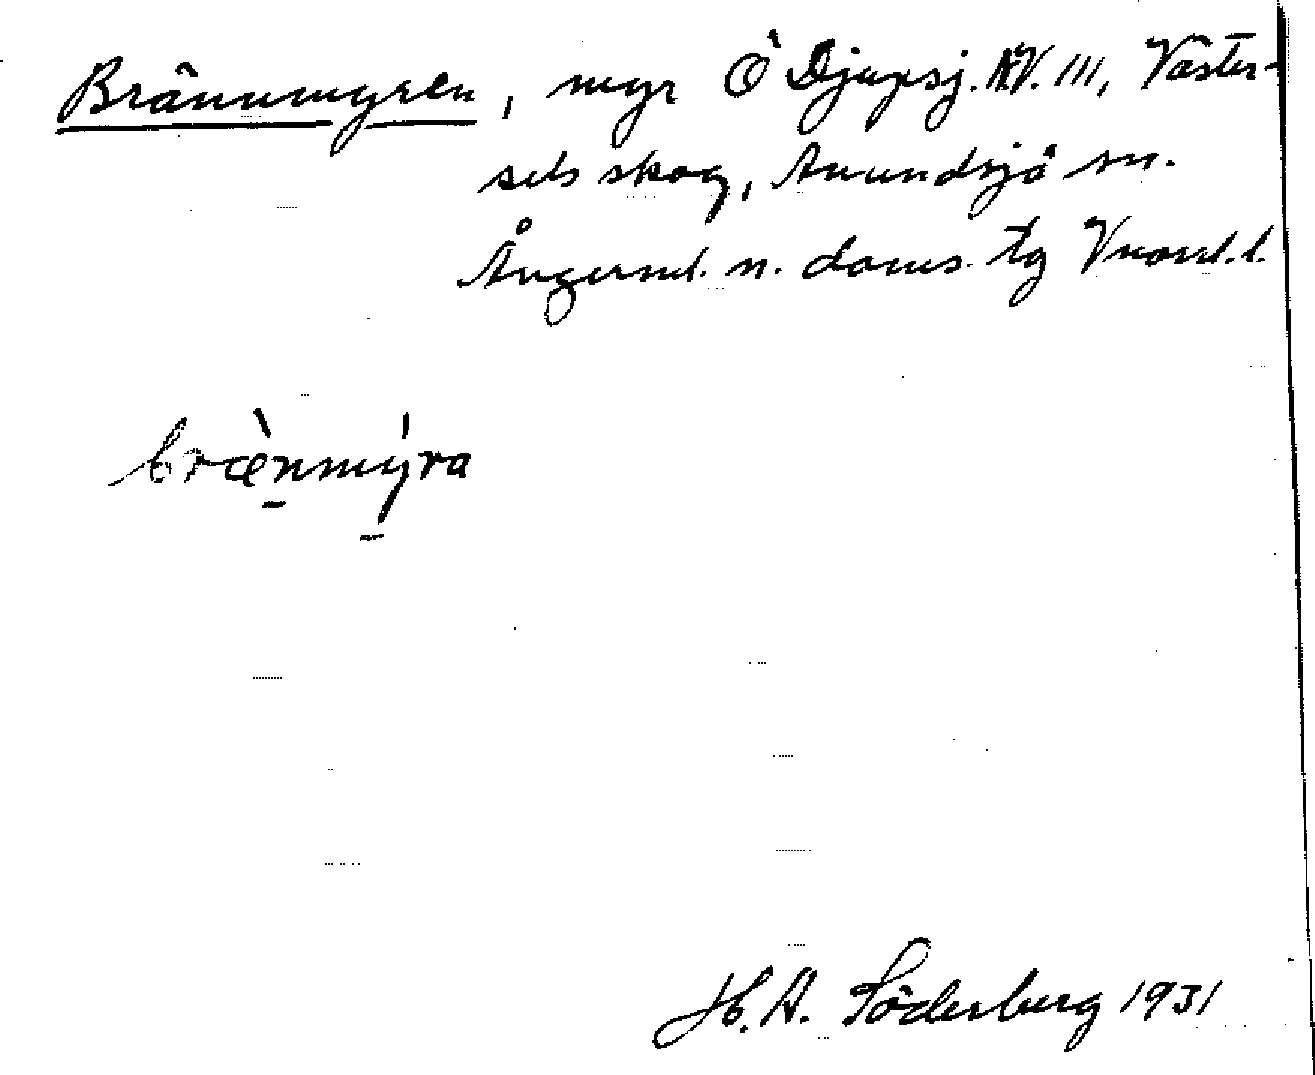 Brännmyren, myr Ö Djupsj. AV. III, Väster-
sels skog, Anundsjö sn.
Ångerml. n. doms. tg Vnorrl. l.
bræ̀nmýra
H. A. Söderberg 1931